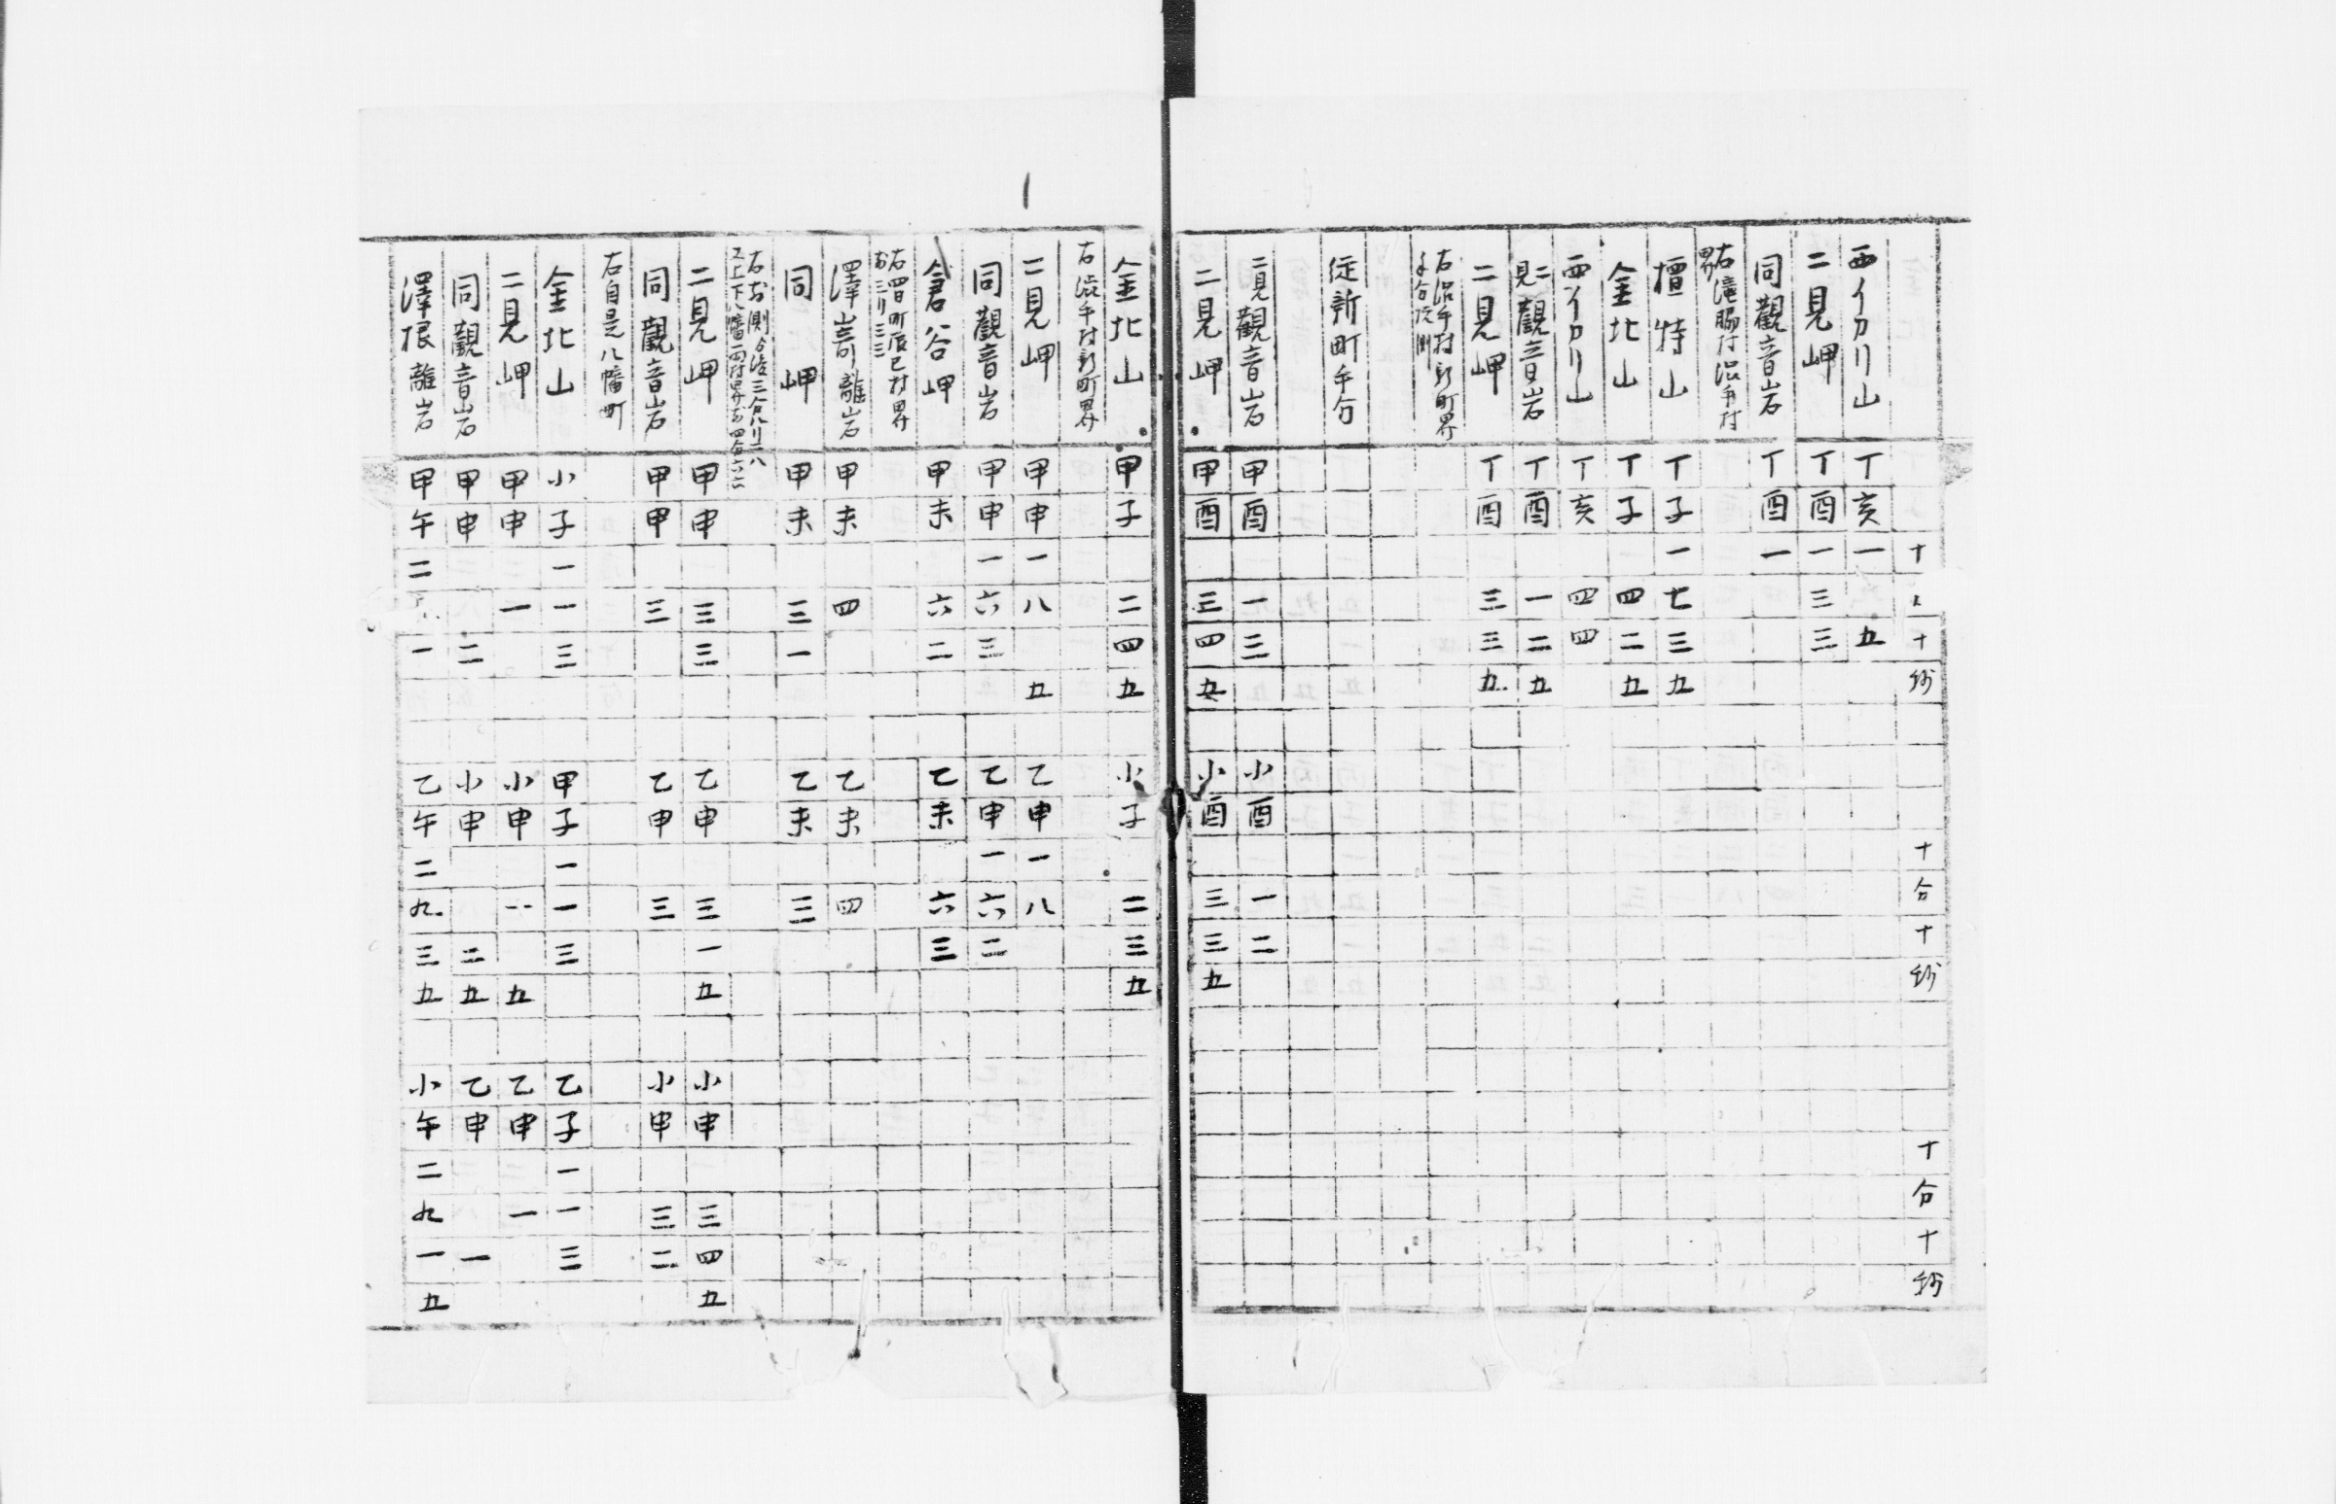 十 十 𬇙 十 分 十 𬇙 十 分 十 𬇙
西イカリ山 丁亥一 五
二見岬 丁酉一三三
同觀音岩 丁酉一
右滝脇村沢手村界
檀特山 丁子一七三五
金北山 丁子 四二五
西イカリ山 丁亥 四四
二見觀音岩 丁酉 一二五
二見岬 丁酉 三三五
従新町手分
二見觀音岩 甲酉 一三 小酉 一二
二見岬 甲酉 三四五 小酉 三三五
金北山 甲子 二四五 小子 二三五
二見岬 甲申一八 五 乙申一八
同觀音岩 甲申一六三 乙申一六二
倉谷岬 甲未 六二 乙未 六三
右四日町辰巳村界
澤崎離岩 甲未 四 乙未 四
同岬 甲未 三一 乙未 三
二見岬 甲申 三三 乙申 三一五 小申 三四五
同觀音岩 甲申 三 乙申 三 小申 三二
右自是八幡町
金北山 小子一一三 甲子一一三 乙子一一三
二見岬 甲申 一 小申 一 五 乙申 一
同觀音岩 甲申 二 小申 二五 乙申 一
澤根離岩 甲午二 一 乙午二九三五 小午二九一五